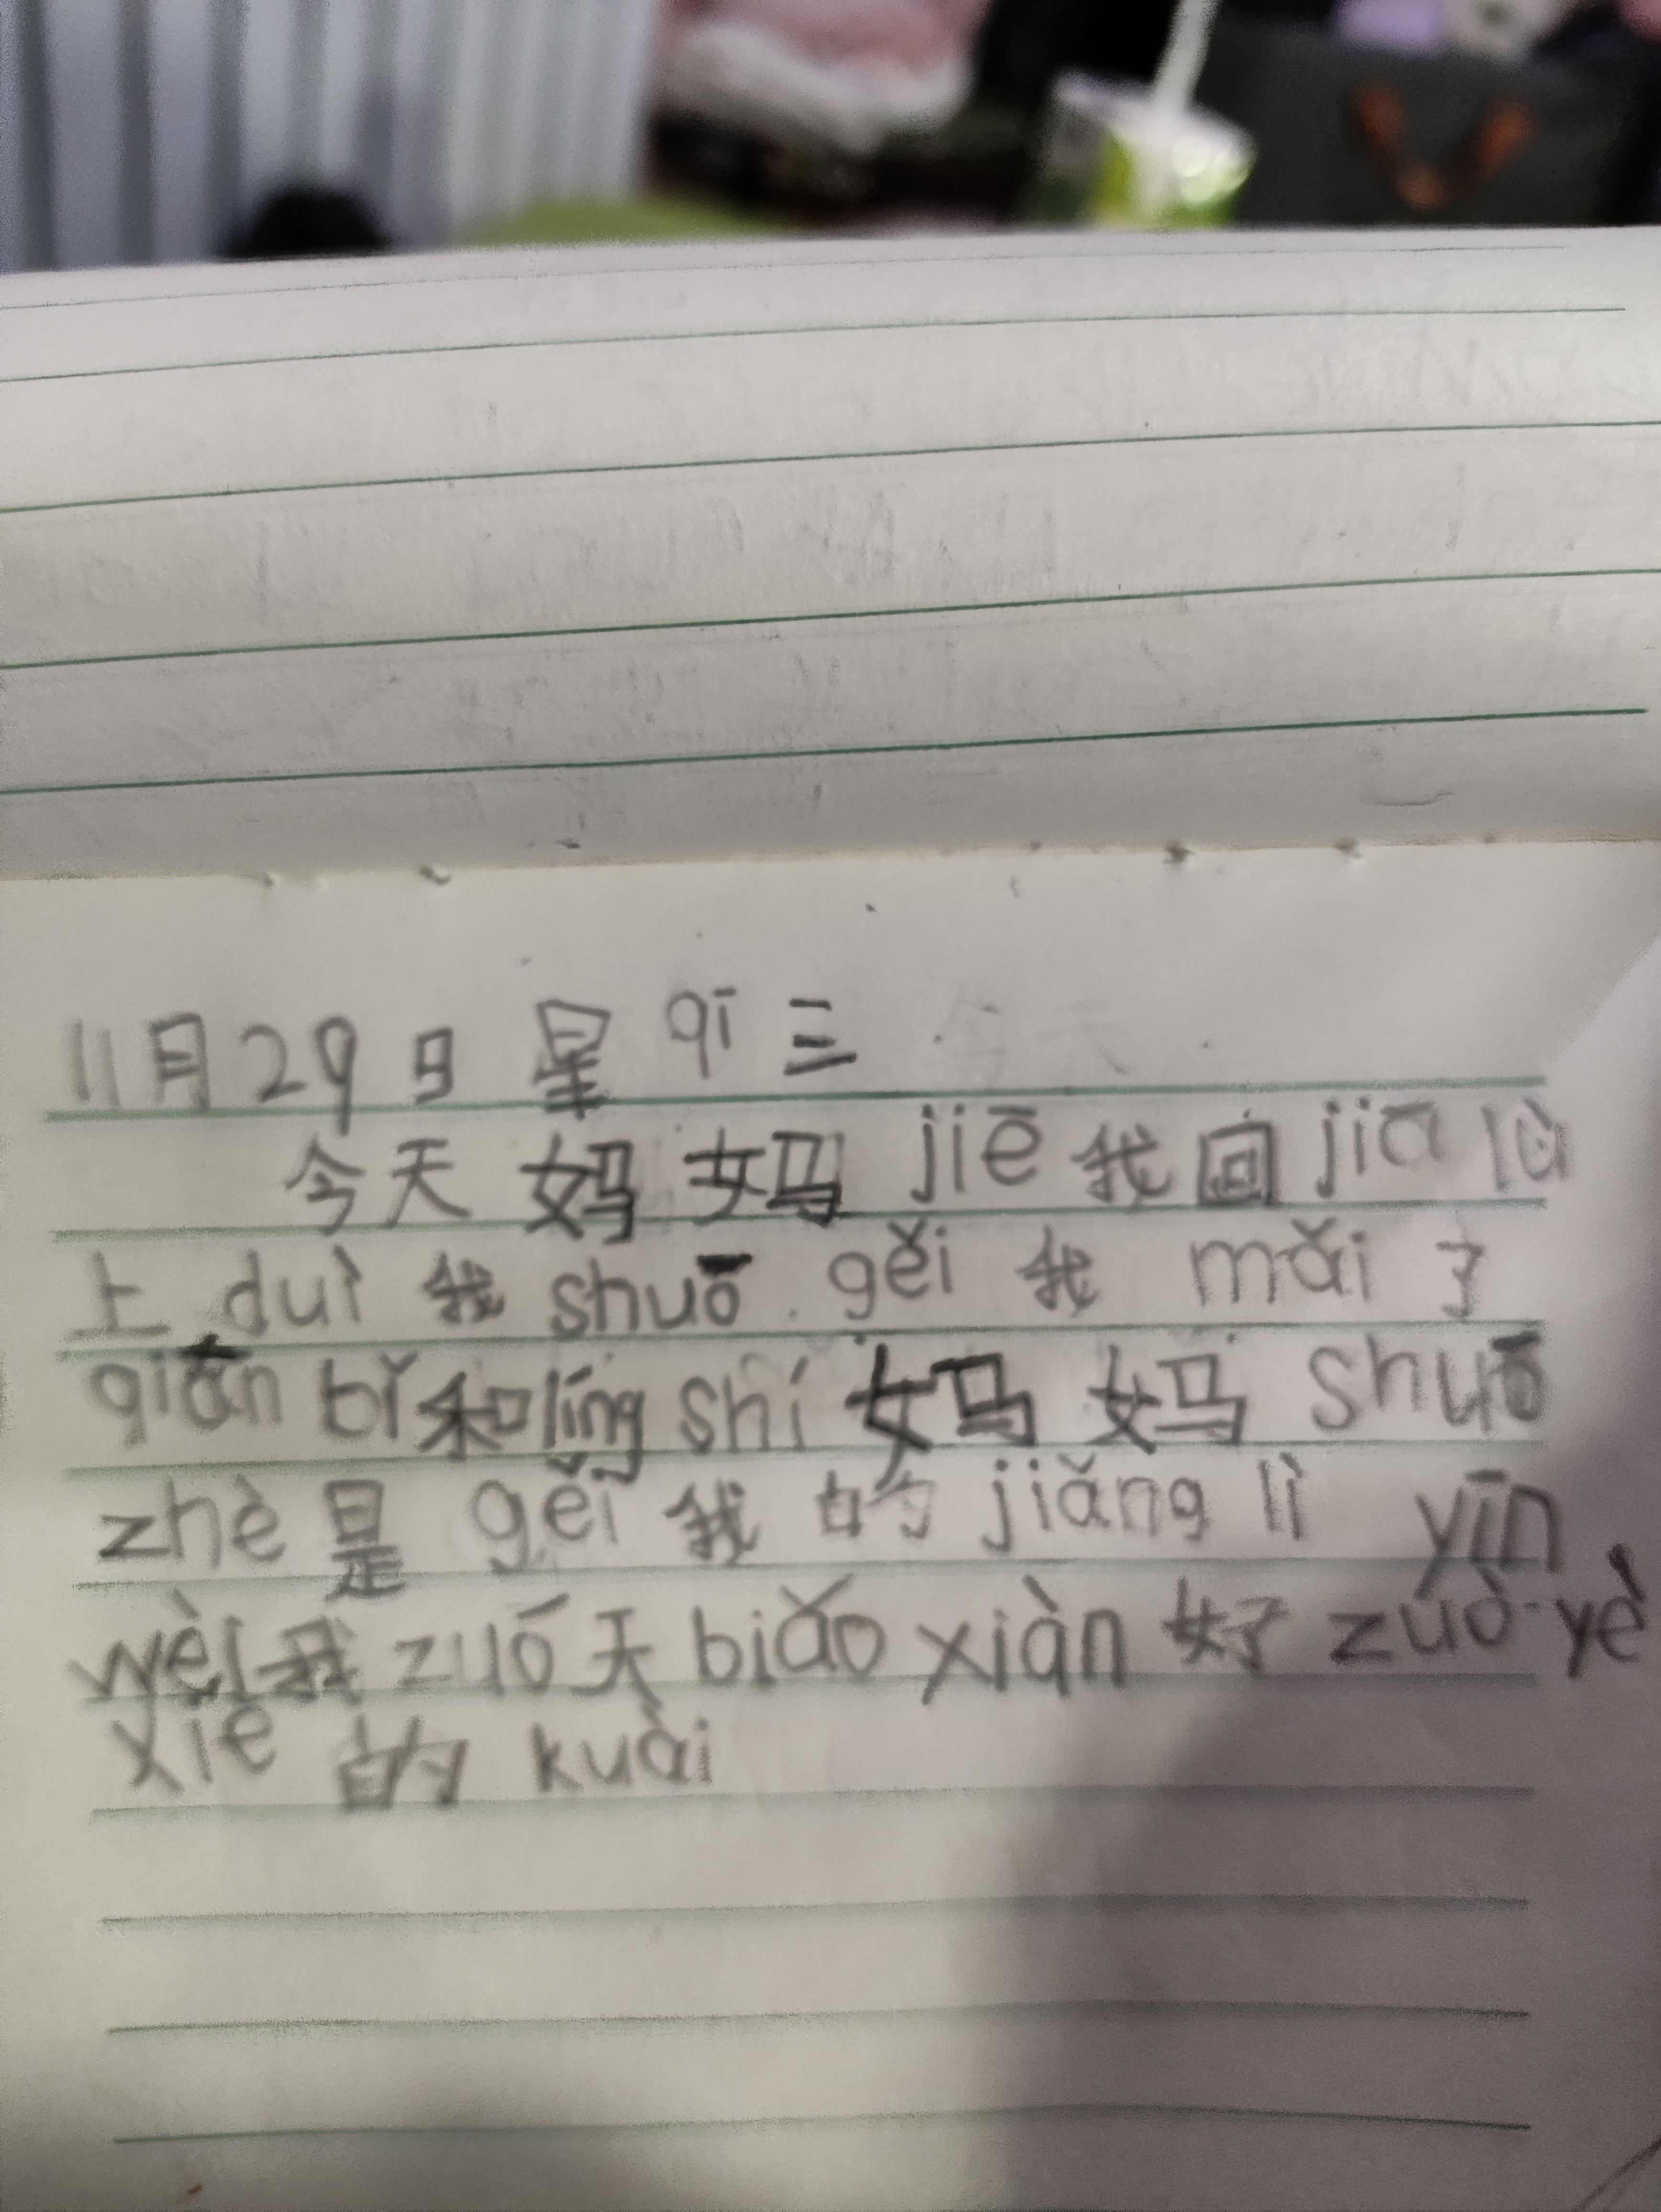 11月29日 星 qī 三
今天 妈 妈 jiē 我 回 jiā lù
上 duì 我 shuō gěi 我 mǎi 了
qiān bǐ 和 líng shí 妈 妈 shuō
zhè 是 gěi 我 的 jiǎng lì yīn
wèi 我 zuó 天 biǎo xiàn 好 zuò yè
xiě 的 kuài